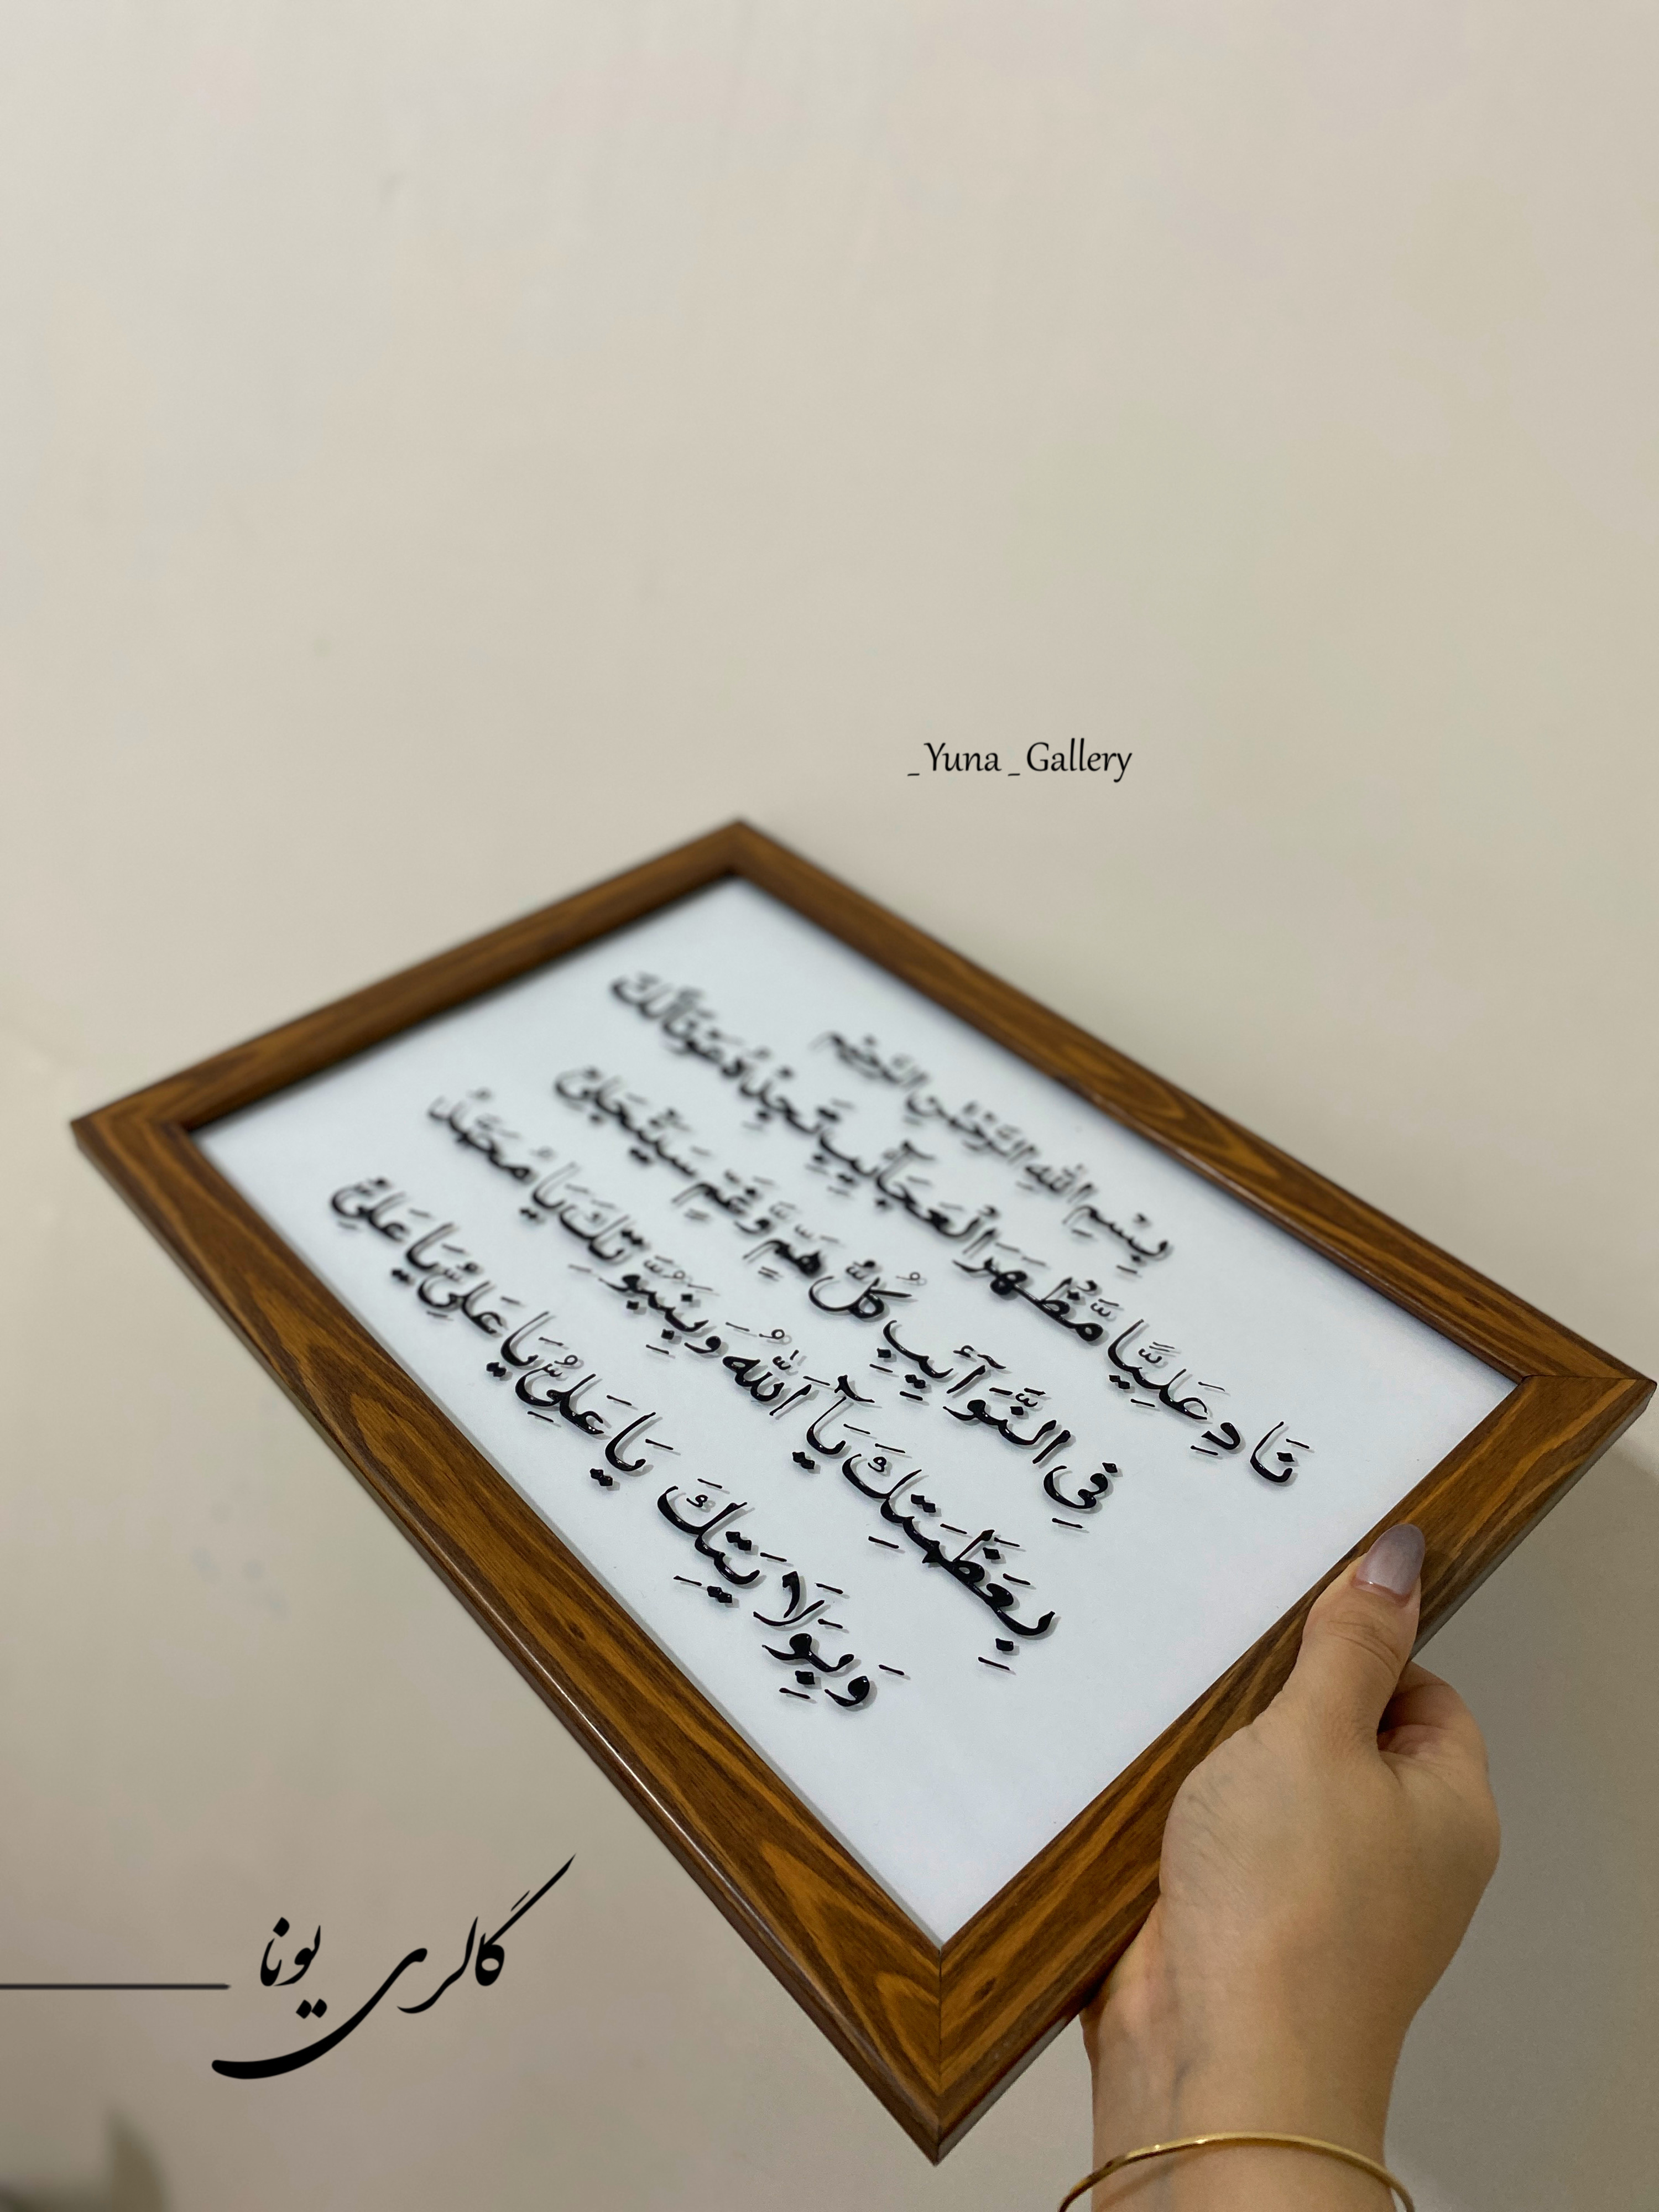 _Yuna_Gallery
بِسْمِ اللهِ الرَّحْمٰنِ الرَّحِيْمِ
نَادِ عَلِيًّا مَّظْهَرَ الْعَجَآئِبِ تَجِدْهُ عَوْنًا لَّكَ
فِى النَّوَآئِبِ كُلُّ هَمٍّ وَّغَمٍّ سَيَنْجَلِىْ
بِعَظَمَتِكَ يَآ اَللّٰهُ وَبِنُبُوَّتِكَ يَا مُحَمَّدُ
وَبِوَلَايَتِكَ يَا عَلِىُّ يَا عَلِىُّ يَا عَلِىُّ
گالری یونا